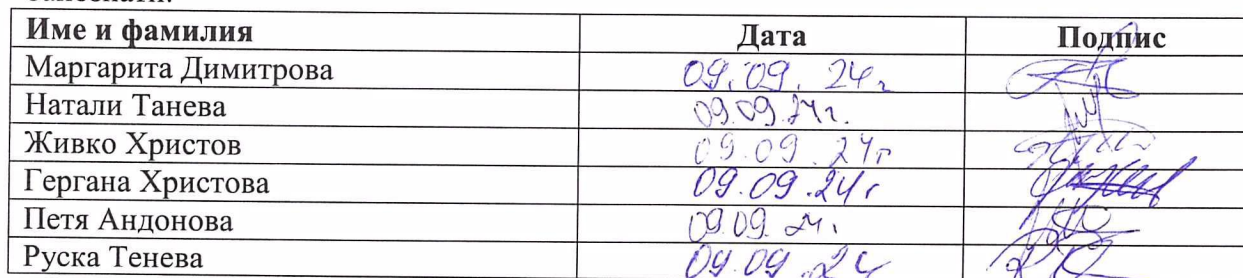 Име и фамилия Дата Подпис
Маргарита Димитрова 09.09.24г
Натали Танева 09.09.24г.
Живко Христов 09.09.24г
Гергана Христова 09.09.24г
Петя Андонова 09.09.24.
Руска Тенева 09.09.24